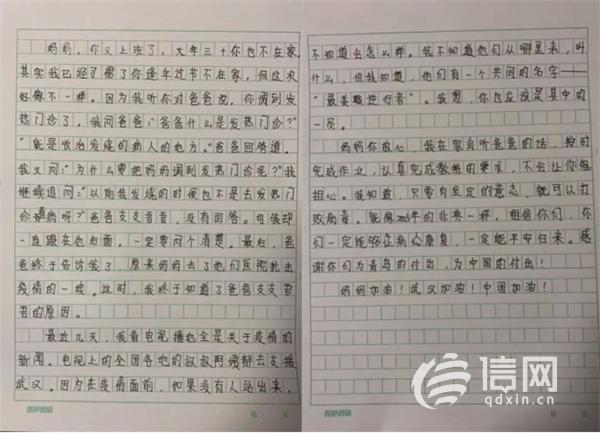 妈妈，你又上班了，大年三十你也不在家，
其实我已经习惯了你逢年过节不在家，但这次
好像不一样。因为我听你对爸爸说，你调到发
热门诊了。我问爸爸：“爸爸什么是发热门诊？”
“就是收治发烧的病人的地方。”爸爸回答道。
我又问：“为什么要把妈妈调到发热门诊呢？”我
继续追问：“以前我发烧的时候也不是去发热门
诊看病呀？”爸爸支支吾吾，没有回答。可我却
一直跟在他后面，一定要问个清楚。最后，爸
爸终于告诉我了，原来妈妈去了他们医院抗击
疫情的一线。这时，我终于知道了爸爸支支吾
吾的原因。
最近几天，我看电视播的全是关于疫情的
新闻。电视上的全国各地的叔叔阿姨都去支援
武汉。因为在疫情面前，如果没有人站出来，
不知道会怎么样。我不知道他们从哪里来，叫
什么，但我知道，他们有一个共同的名字——
“最美逆行者”。我想，你也应该是其中的
一员。
妈妈你放心，我在家会听爸爸的话，按时
完成作业，认真完成教练的要求，不会让你
担心。我知道，只要有坚定的意志，就可以打
败病毒。就像2003年的非典一样，相信你们，你
们一定能够让病人康复，一定能平安归来。感
谢你们为青岛的付出，为中国的付出！
妈妈加油！武汉加油！中国加油！
信网
qdxin.cn